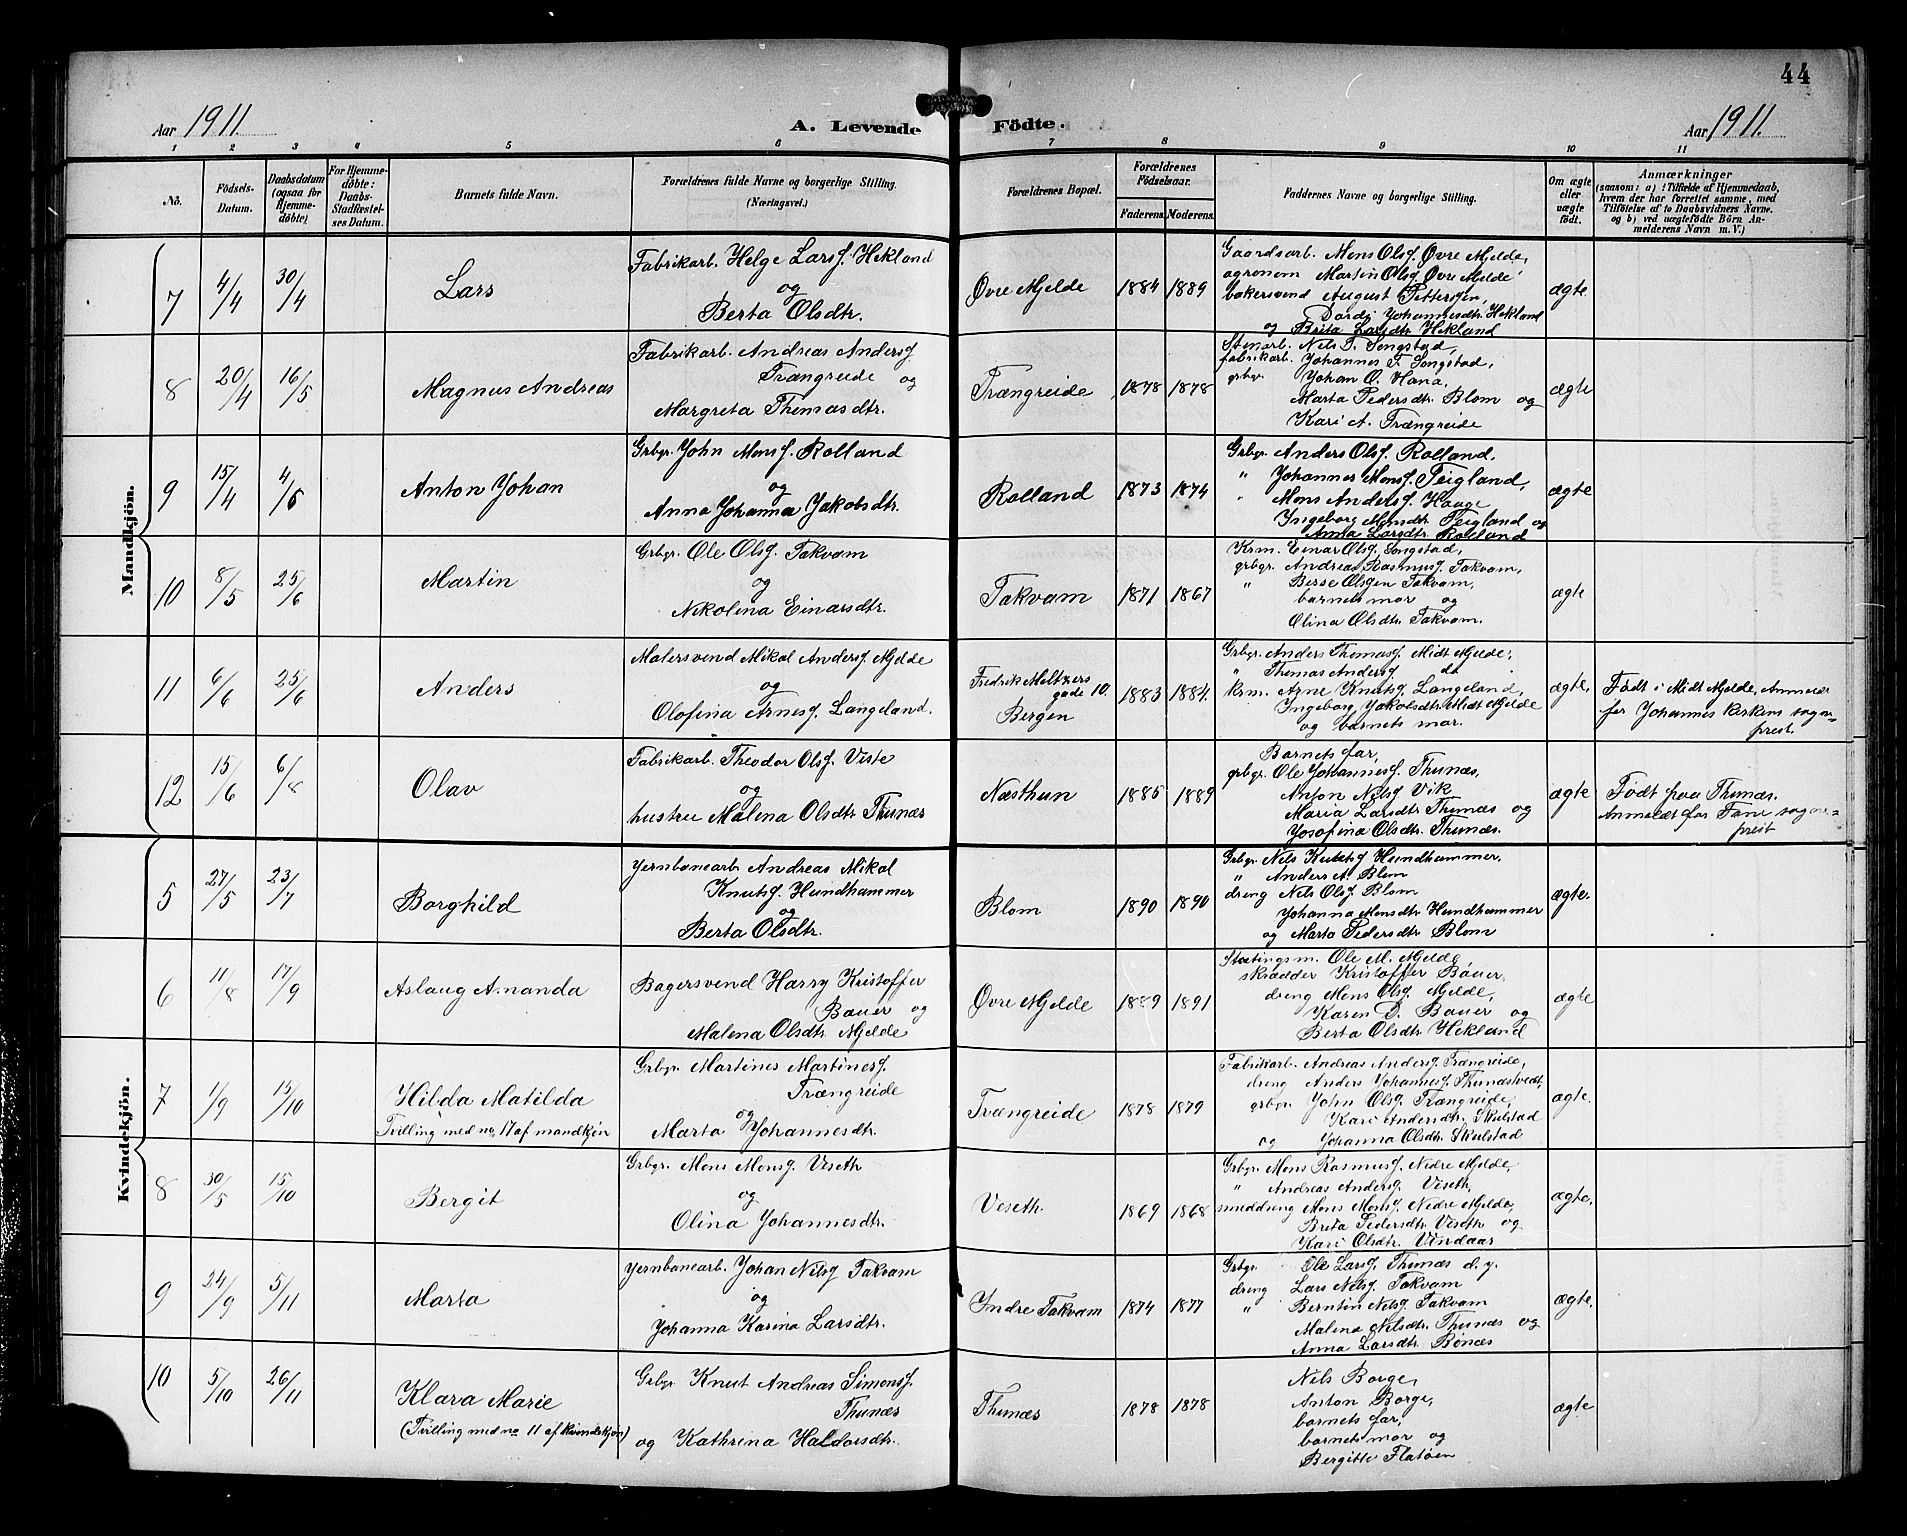 44
Aar 1911.
A. Levende Födte.
Aar 1911.
1 2 3 4 5 6 7 8 9 10 11
No.
Födsels-Datum.
Daabsdatum (ogsaa for Hjemmedöbte)
For Hjemmedöbte: Daabs-Stadfæstelses Datum.
Barnets fulde Navn.
Forældrenes fulde Navne og borgerlige Stilling.
(Næringsvei.)
Forældrenes Bopæl.
Forældrenes Födselsaar.
Faderens. Moderens.
Faddernes Navne og borgerlige Stilling.
Om ægte eller uægte födt.
Anmærkninger
(saasom: a) i Tilfælde af Hjemmedaab,
hvem der har forrettet samme, med
Tilföielse af to Daabsvidners Navne,
og b) ved uægtefödte Börn Anmelderens Navn m. V.)
Mandkjön.
7 4/4 30/4 Lars
Fabrikarb. Helge Larsf. Hekland
og
Berta Olsdtr.
Øvre Mjelde 1884 1889
Gaardsarb. Mons Olsf. Øvre Mjelde,
agronom Martin Olsf. Øvre Mjelde
bakersvend August Pettersen,
Dordi Johannesdtr. Hekland
og Brita Larsdtr. Hekland
ægte
8 20/4 16/5 Magnus Andreas
Fabrikarb. Andreas Andersf
Trængreide og
Margreta Thomasdtr.
Trængreide 1878 1878
Stenarb. Nels T. Songstad,
fabrikarb. Johannes T. Songstad,
grbgr. Johan O. Hana,
Marta Pedersdtr. Blom og
Kari A. Trængreide
ægte
9 15/4 4/6 Anton Johan
Grbgr. John Monsf. Rolland
og
Anna Johanna Jakobsdtr.
Rolland 1873 1874
Grbgr. Anders Olsf. Rolland.
" Johannes Monsf. Teigland,
" Mons Andersf. Hauge
Ingeborg Monsdtr. Teigland og
Anna Larsdtr. Rolland
ægte
10 8/5 25/6 Martin
Grbgr. Ole Olsf. Takvam
og
Nikolina Einarsdtr.
Takvam 1871 1867
Krm. Einar Olsf. Songstad,
grbgr. Andreas Rasmusf. Takvam,
" Berse Olsgen Takvam,
barnets mor og
Olina Olsdtr. Takvam.
ægte
11 6/6 25/6 Anders
Malersvend Mikal Andersf. Mjelde
og
Olofina Arnesf. Langeland.
Fredrik Meltzers
gade 10.
Bergen
1883 1884.
Grbgr. Anders Thomasf. Midt Mjelde,
" Thomas Andersf. dt
krm. Arne Knutsf. Langeland,
Ingeborg Jakobsdtr. Midt Mjelde
og barnets mor.
ægte,
Født i Midt Mjelde, Anmeldt
for Johannes kirkens sogne-
prest.
12 15/6 6/8 Olav
Fabrikarb. Theodor Olsf. Viste
og
hustru Malena Olsdtr. Thunæs
Næsthun 1885 1889
Barnets far,
grbgr. Ole Johannesf. Thunæs,
Anton Nilsf. Vik
Maria Larsdtr. Thunæs og
Josofina Olsdtr. Thunæs.
ægte
Født paa Thunæs.
Anmeldt for Fane sogne-
prest
Kvindekjön.
5 27/5 23/7 Borghild
Jernbanearb. Andreas Mikal
Knutsf. Hundhammer
og
Berta Olsdtr.
Blom 1890 1890
Grbgr. Nels Knutsf Hundhammer.
" Anders A. Blom
dreng Nils Olsf. Blom
Johanna Monsdtr Hundhammer
og Marta Pedersdtr Blom
ægte.
6 11/8 17/9 Aslaug Ananda
Bagersvend Harry Kristoffer
Bauer og
Malena Olsdtr. Mjelde
Øvre Mjelde 1889 1891
Stortingsm. Ole M. Mjelde
skrædder Kristoffer Bauer,
dreng Mons Olsf. Mjelde,
Karen D. Bauer og
Berta Olsdtr. Hekland
ægte
7 1/9 15/10 Hilda Matilda
Tvilling med no 17 af mandkjøn
Grbgr. Martines Martinesf.
Trængreide
og
Marta Johannesdtr.
Trængreide 1878 1879
Fabrikarb. Andreas Andersf. Trængreide,
dreng Anders Johannesf. Thunæstvedt
grbgr. John Olsf. Trængreide,
Kari Andersdtr. Skulstad
og Johanna Olsdtr. Skulstad
ægte.
8 30/5 15/10 Bergit
Grbgr. Mons Monsf. Veseth
og
Olina Johannesdtr.
Veseth. 1869 1868
Grbgr. Mons Rasmusf. Nedre Mjelde,
" Andreas Andersf. Veseth,
smeddreng Mons Monsf. Nedre Mjelde,
Brita Pedersdtr. Veseth og
Kari Olsdtr. Vindaas
ægte,
9 24/9 5/11 Marta
Jernbanearb. Johan Nilsf Takvam
og
Johanna Karina Larsdtr.
Indre Takvam 1874 1877
Grbgr. Ole Larsf. Thunæs d. y.
dreng Lars Nilsf. Takvam
" Berntin Nilsf. Takvam
Malena Nilsdtr. Thunæs og
Anna Larsdtr. Bønæs
ægte,
10 5/10 26/11 Klara Marie
(Tvilling med no 11 af kvindekjøn)
Grbgr. Knut Andreas Simonsf.
Thunæs
og Kathrina Haldorsdtr.
Thunæs 1878 1878
Nels Borge,
Anton Borge,
barnets far,
barnets mor og
Bergitte Flatøen
ægte